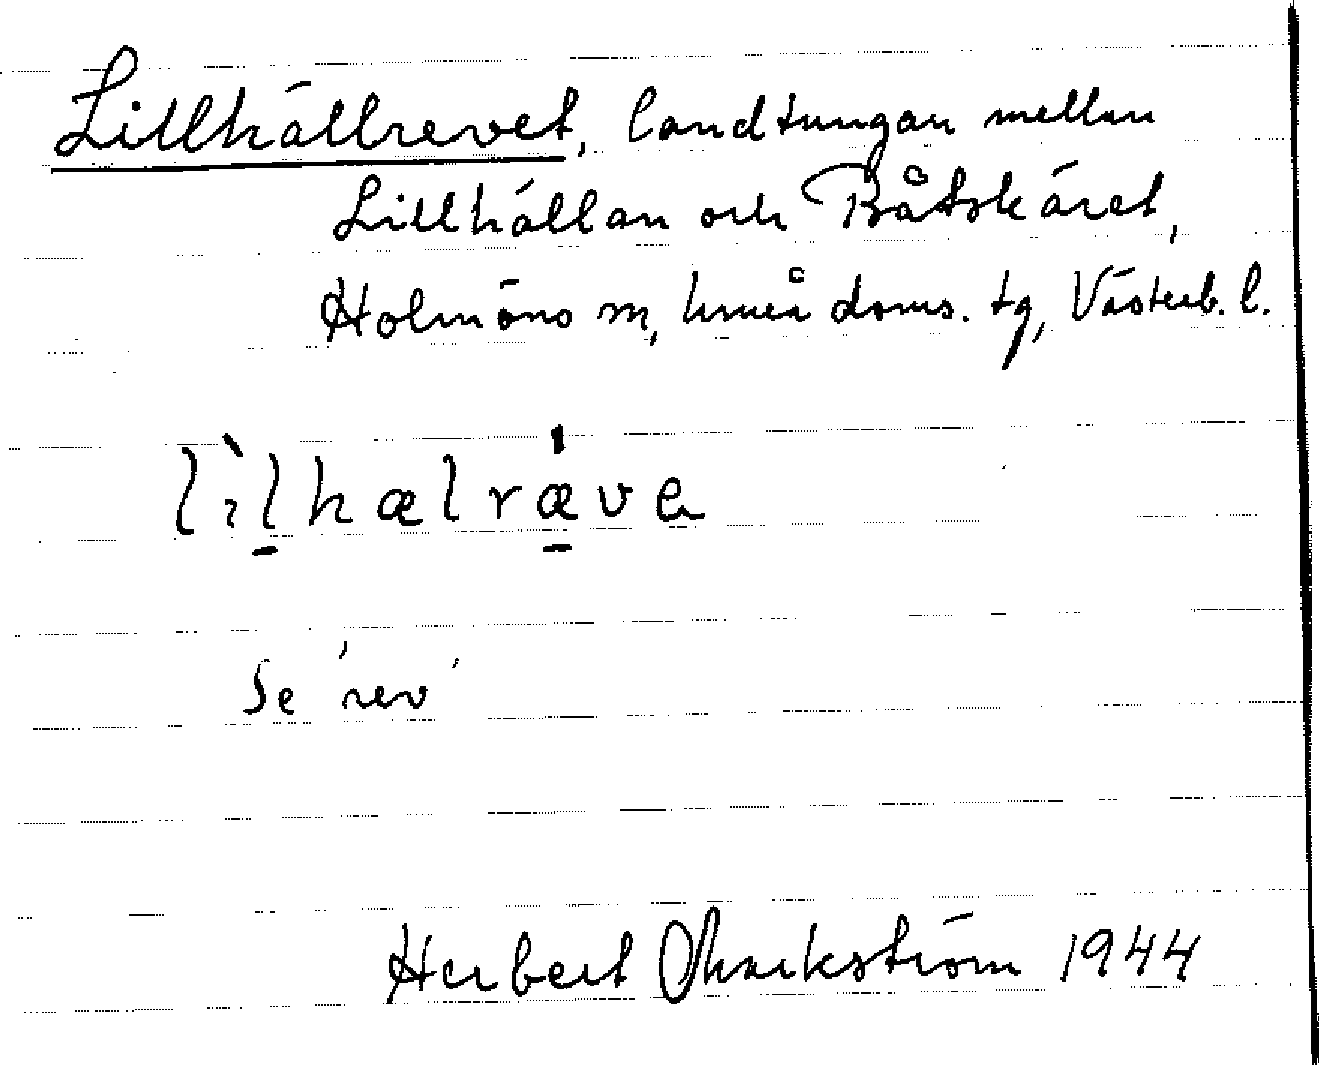 Lillhällrevet, landtungan mellan
Lillhällan och Båtskäret,
Holmöns sn, Umeå doms. tg, Västerb. l.
lìlhælrǽve
Se 'rev'
Herbert Markström 1944